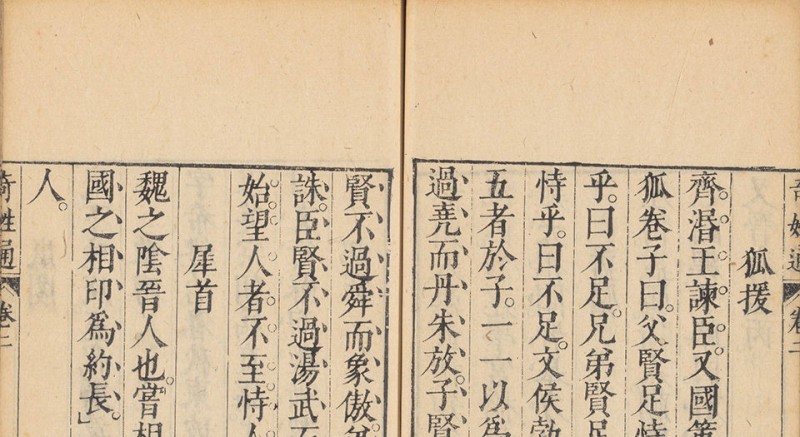 奇姓通 卷二
狐援
齊湣王諫臣。又國策
狐卷子曰。父賢足恃
乎。曰不足。兄弟賢足
恃乎。曰不足。文侯勃
五者於子。一一以爲
過堯而丹朱放子賢
賢不過舜而象傲
誅。臣賢不過湯武
始。望人者不至。恃人
犀首
魏之陰晉人也。嘗相
國之相印。爲約長。」
人。
奇姓通 卷二